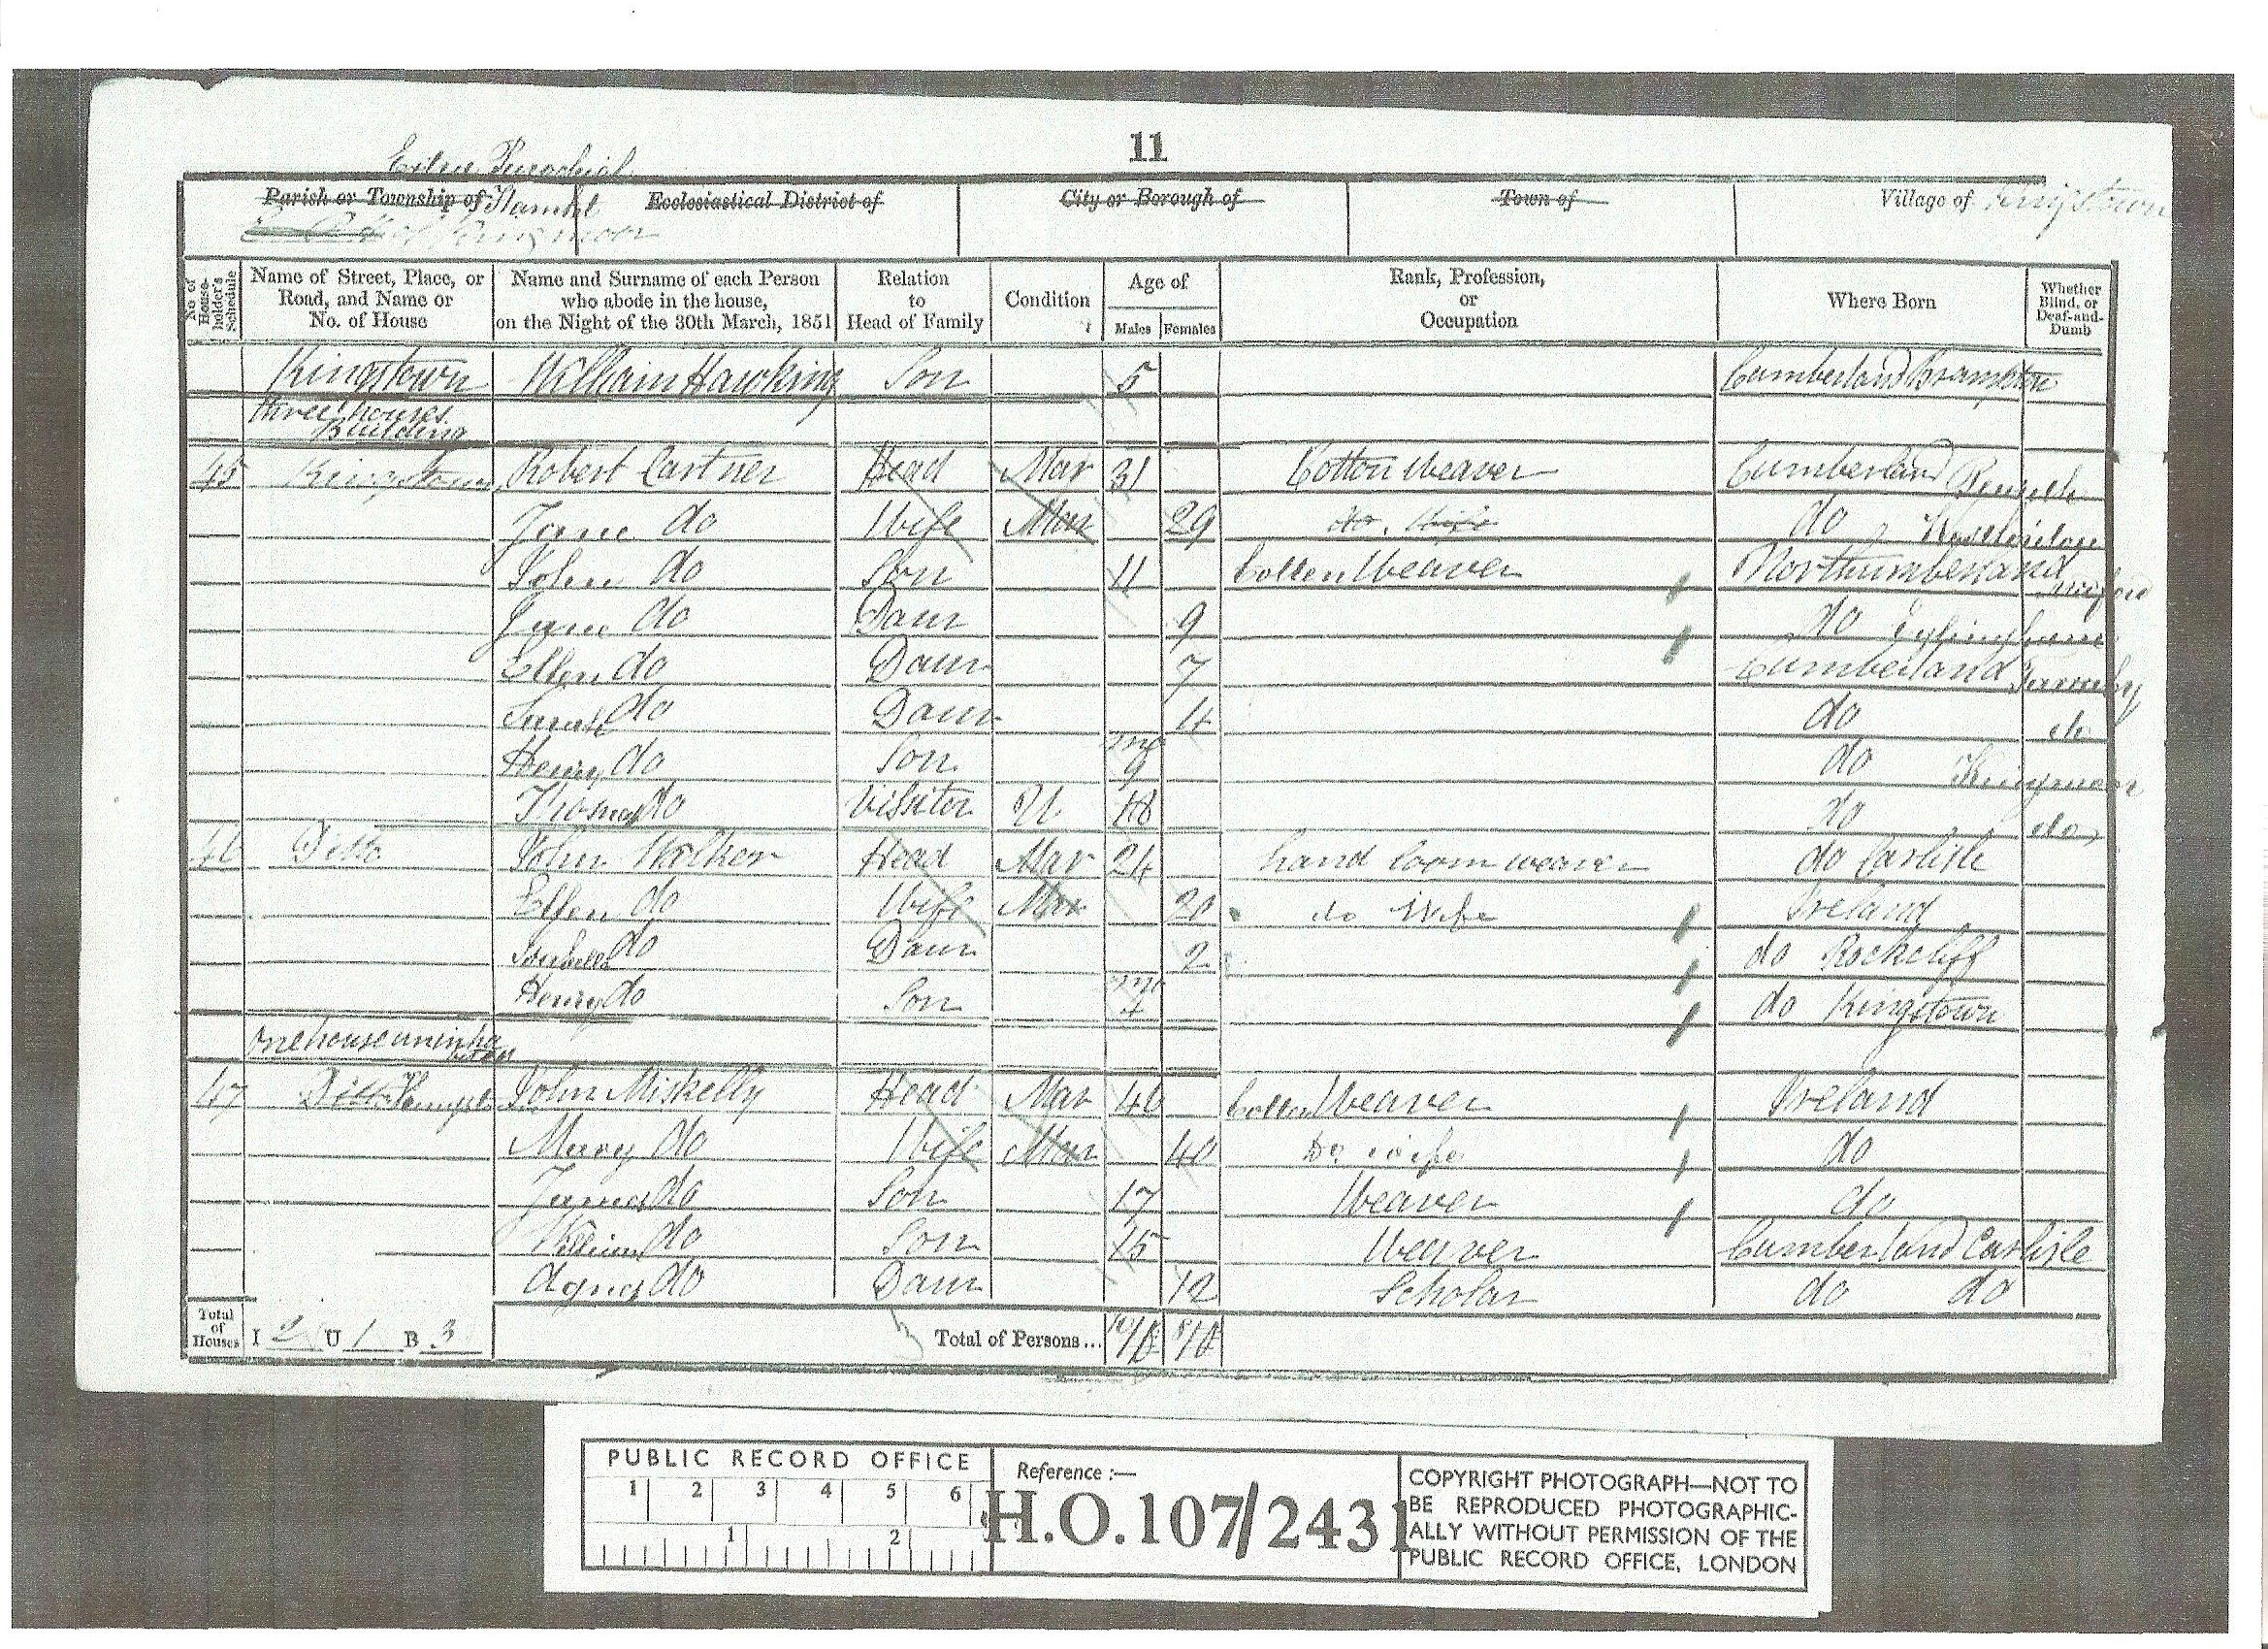 11
Extra Parochial
Parish or Township of Hamlet Ecclesiastical District of City or Borough of Town of Village of Kingstown
of Kingmoor
No of House-holder's Schedule Name of Street, Place, or Road, and Name or No. of House Name and Surname of each Person who abode in the house, on the Night of the 30th March, 1851 Relation to Head of Family Condition Age of Males Females Rank, Profession, or Occupation Where Born Whether Blind, or Deaf-and-Dumb
Kingstown William Hawking Son 5 Cumberland Brampton
three houses Building
45 Kingstown Robert Cartner Head Mar 31 Cotton Weaver Cumberland
Jane do Wife Mar 29 do. Wife do
John do Son 11 Cotton Weaver Northumberland
Jane do Daur 9 do Eglingham
Ellen do Daur 7 Cumberland
Sarah do Daur 4 do do
Henry do Son mo 9 do Kingmoor
Thomas do Visitor U 18 do do
46 Ditto John Walker Head Mar 24 hand loom weaver do Carlisle
Ellen do Wife Mar 20 do Wife Ireland
Isabella do Daur 2 do Rockcliff
Henry do Son mo 4 do Kingstown
One house uninhabited
47 Ditto John Miskelly Head Mar 46 Cotton Weaver Ireland
Mary do Wife Mar 40 Do wife do
James do Son 17 Weaver do
William do Son 15 Weaver Cumberland Carlisle
Agnes do Daur 12 Scholar do do
Total of Houses I 2 U 1 B 3 Total of Persons...
PUBLIC RECORD OFFICE
1 2 3 4 5 6
1 2
Reference :—
H.O.107/2431
COPYRIGHT PHOTOGRAPH—NOT TO
BE REPRODUCED PHOTOGRAPHIC-
ALLY WITHOUT PERMISSION OF THE
PUBLIC RECORD OFFICE, LONDON